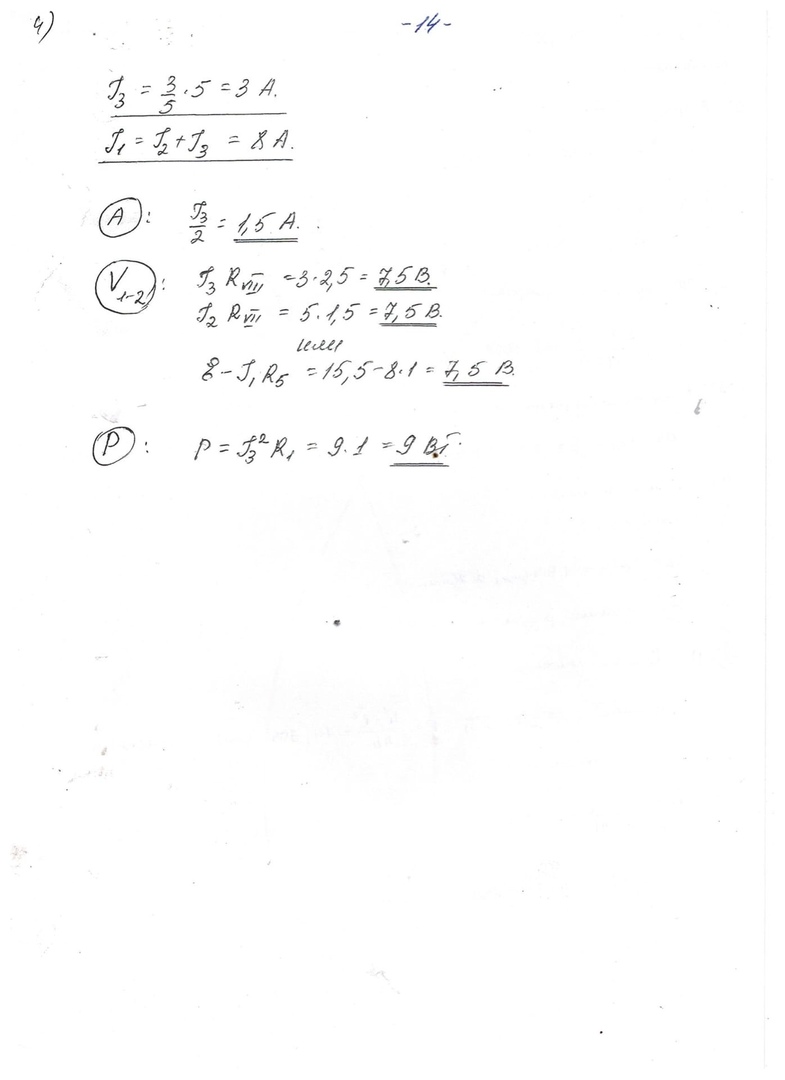 4)
-14-
J₃ = 3/5 · 5 = 3 А.
J₁ = J₂ + J₃ = 8 А.
(A): J₃/2 = 1,5 А.
(V₁₋₂): J₃ R_VIII = 3·2,5 = 7,5 В.
J₂ R_VII = 5·1,5 = 7,5 В.
или
ℰ - J₁R₅ = 15,5 - 8·1 = 7,5 В.
(P): P = J₃² R₁ = 9·1 = 9 Вт.